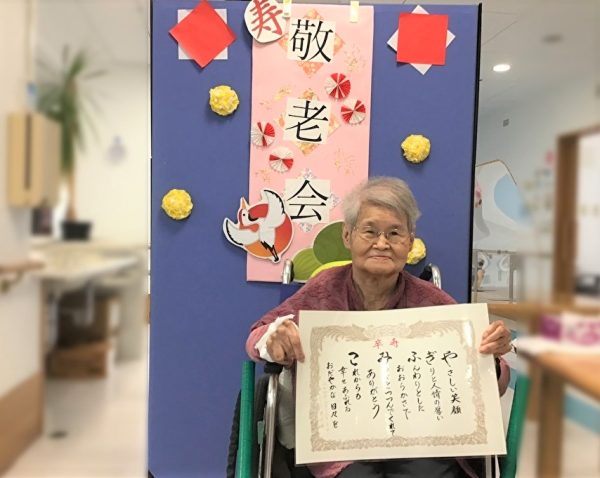 寿
敬老会
卒寿
やさしい笑顔
ぎりと人情の厚い
ふんわりとした
おおらかさで
みんなをつつんでくれて
ありがとう
これからも
幸せあふれる
おだやかな日々を